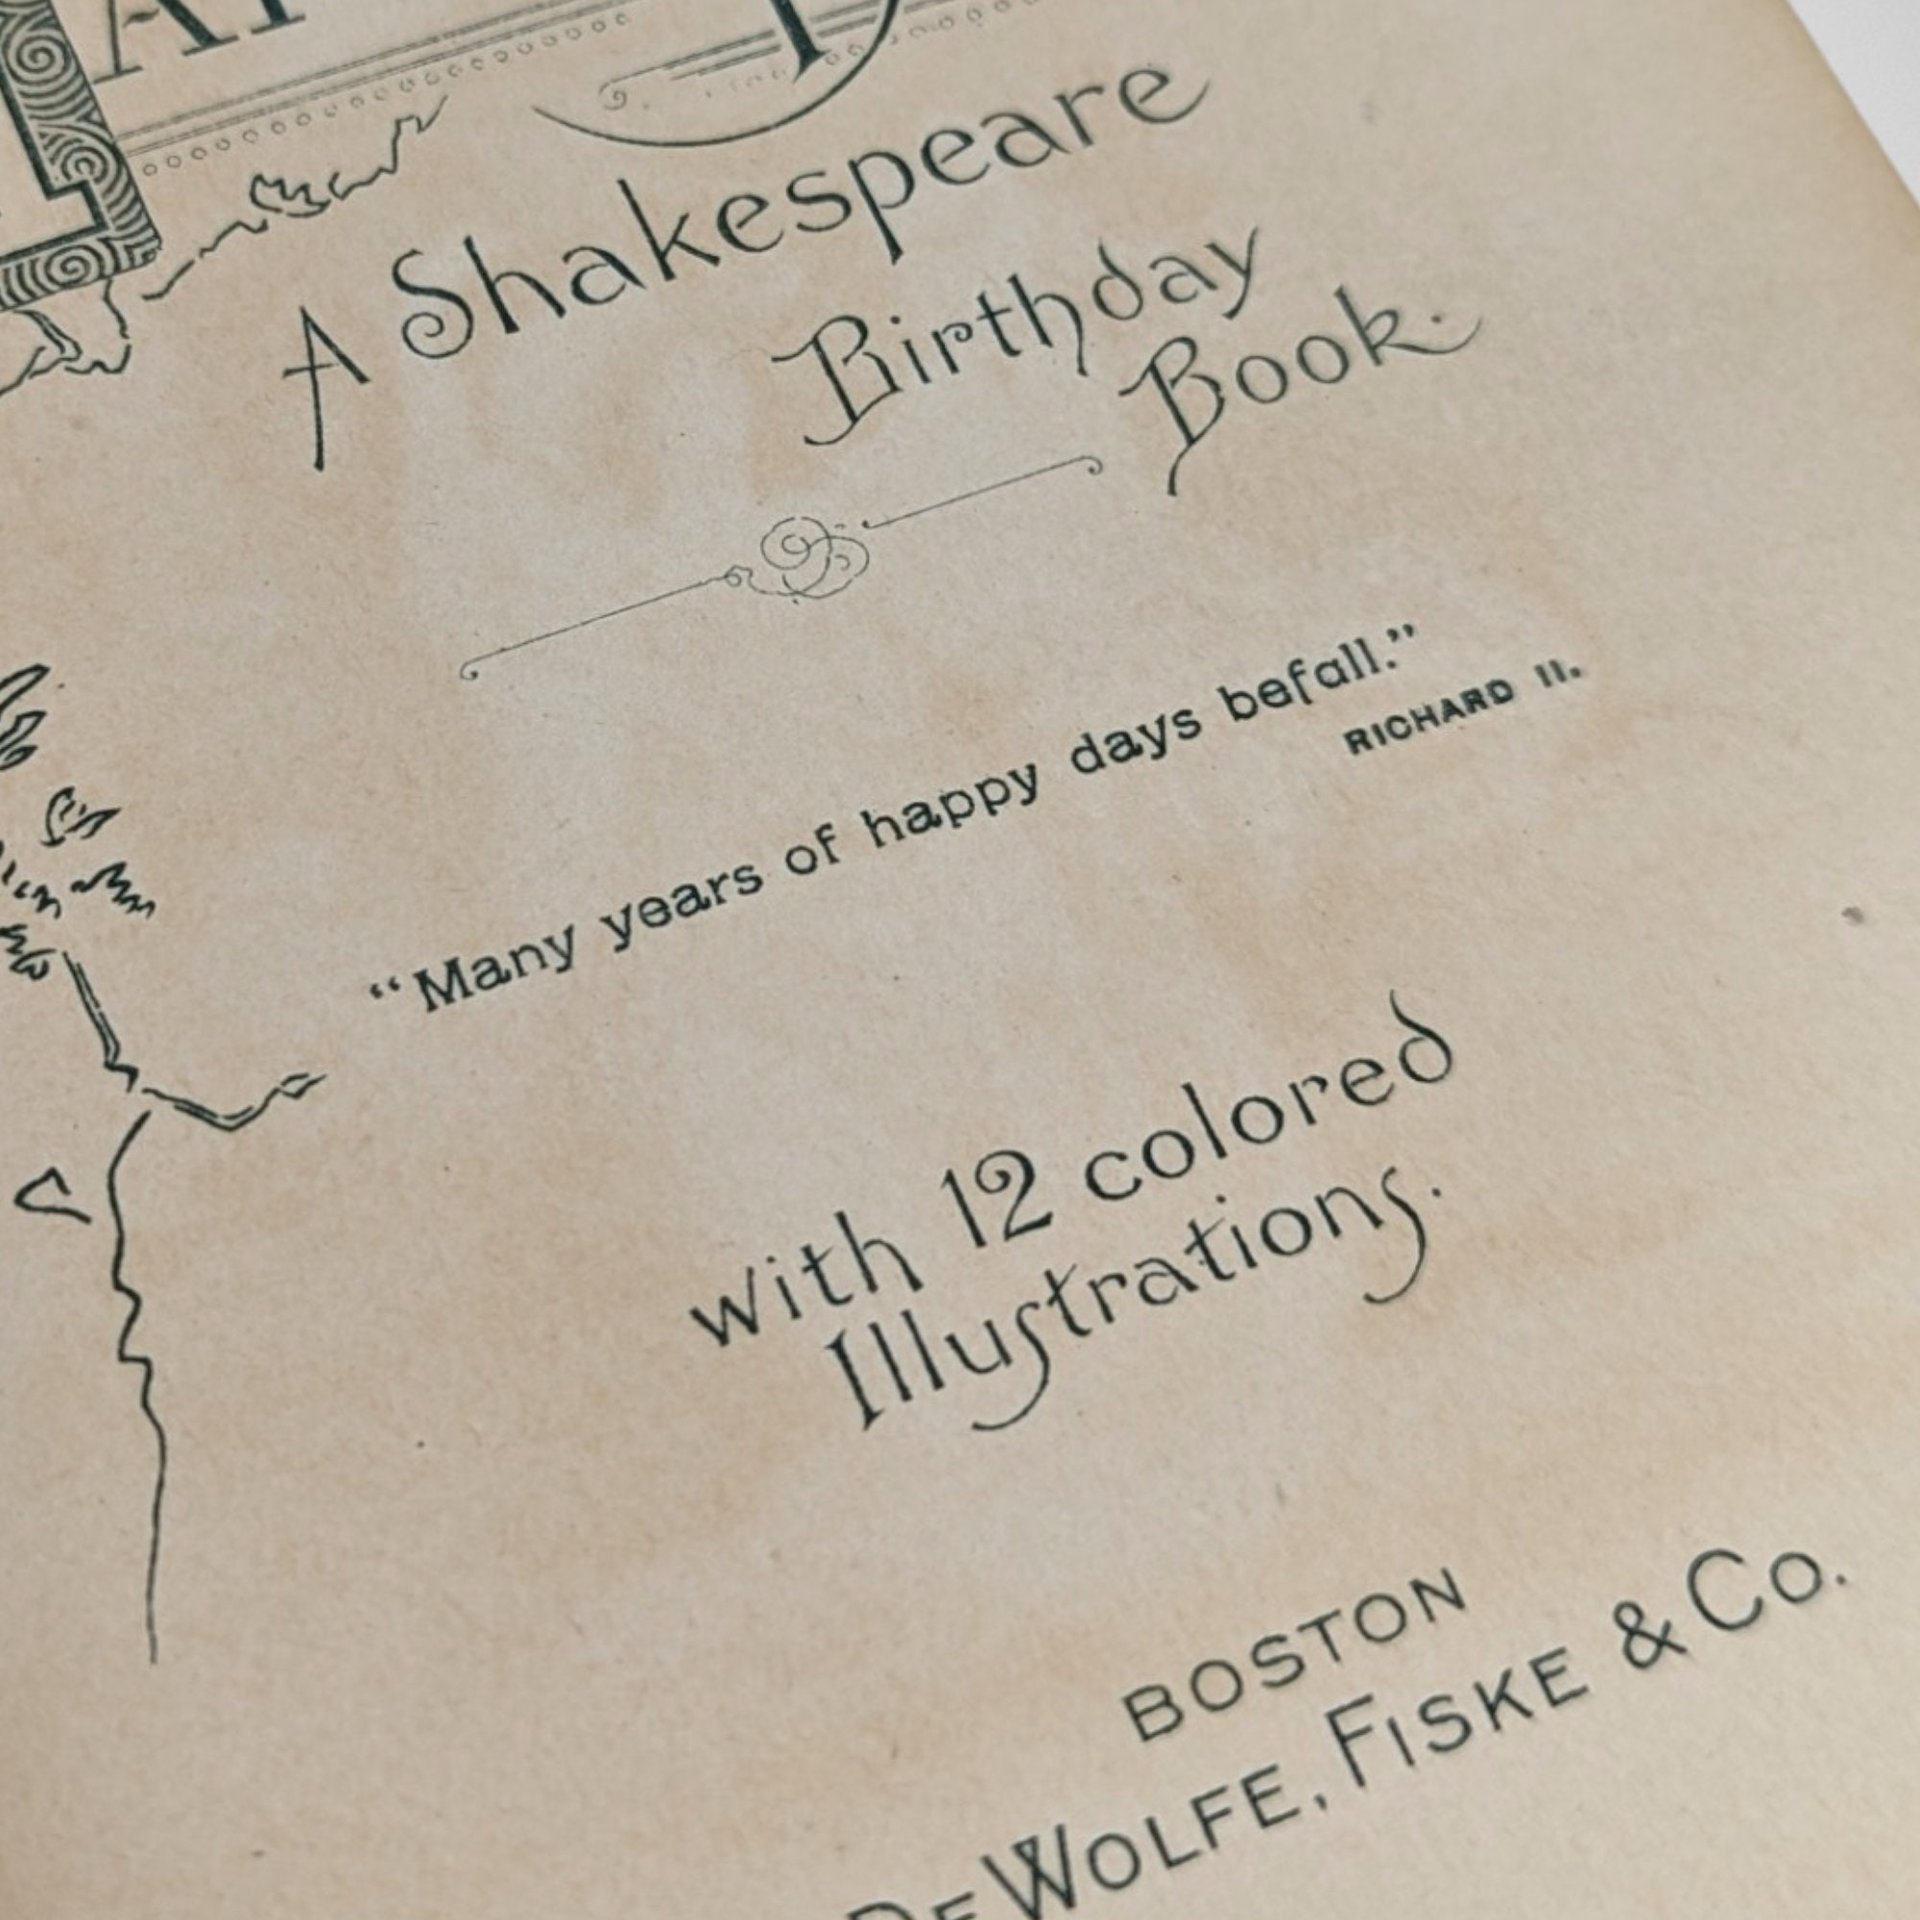 A Shakespeare
Birthday
Book.
“Many years of happy days befall.”
RICHARD II.
with 12 colored
Illustrations.
BOSTON
DeWolfe, Fiske & Co.